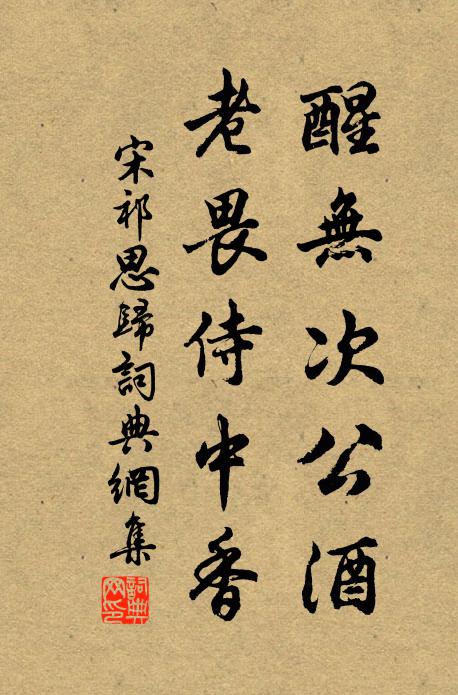 醒無次公酒
老畏侍中香
宋祁思歸詞典網集
詞典網印